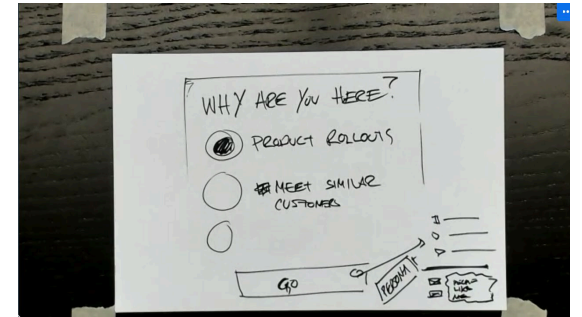 WHY ARE YOU HERE?
PRODUCT ROLLOUTS
MEET SIMILAR
CUSTOMERS
GO
PERSONA
LIKE
ME